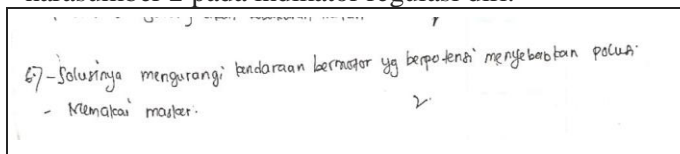 narasumber 2 pada indikator regulasi diri.
67 - Solusinya mengurangi kendaraan bermotor yg berpotensi menyebabkan polusi.
- Memakai masker.
2.